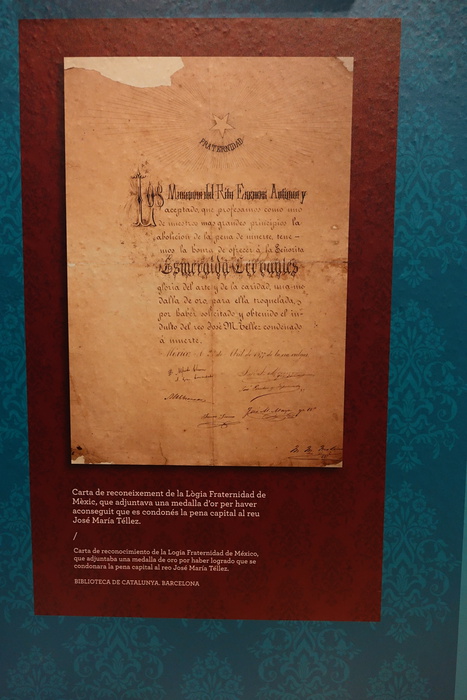 FRATERNIDAD
Los Masones del Rito Escoces Antiguo y
aceptado, que profesamos como uno
de nuestros mas grandes principios la
abolicion de la pena de muerte, tene-
mos la honra de ofrecer á la Señorita
Esmeralda Cervantes
gloria del arte y de la caridad, una me
dalla de oro, para ella troquelada,
por haber solicitado y obtenido el in-
dulto del reo José M. Tellez condenado
á muerte.
Carta de reconeixement de la Lògia Fraternidad de
Mèxic, que adjuntava una medalla d'or per haver
aconseguit que es condonés la pena capital al reu
José María Téllez.
/
Carta de reconocimiento de la Logia Fraternidad de México,
que adjuntaba una medalla de oro por haber logrado que se
condonara la pena capital al reo José María Téllez.
BIBLIOTECA DE CATALUNYA. BARCELONA